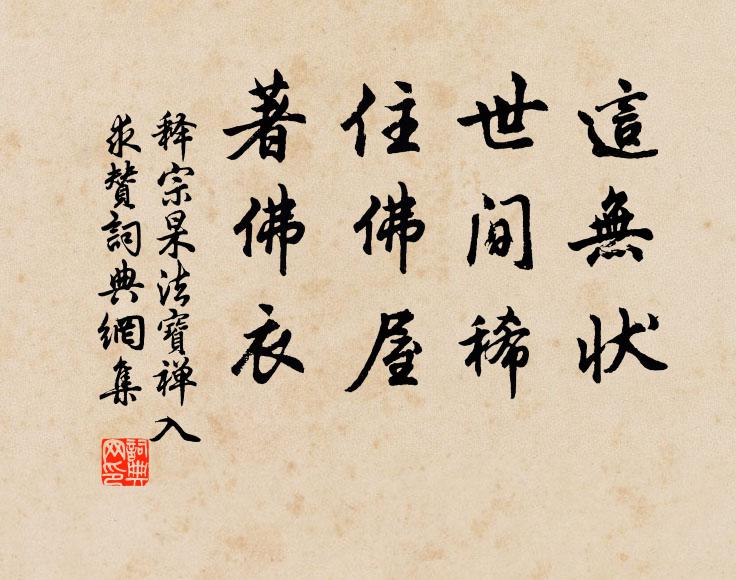 這無狀
世間稀
住佛屋
著佛衣
释宗杲法寶禅入
求贊詞典網集
詞典
网印